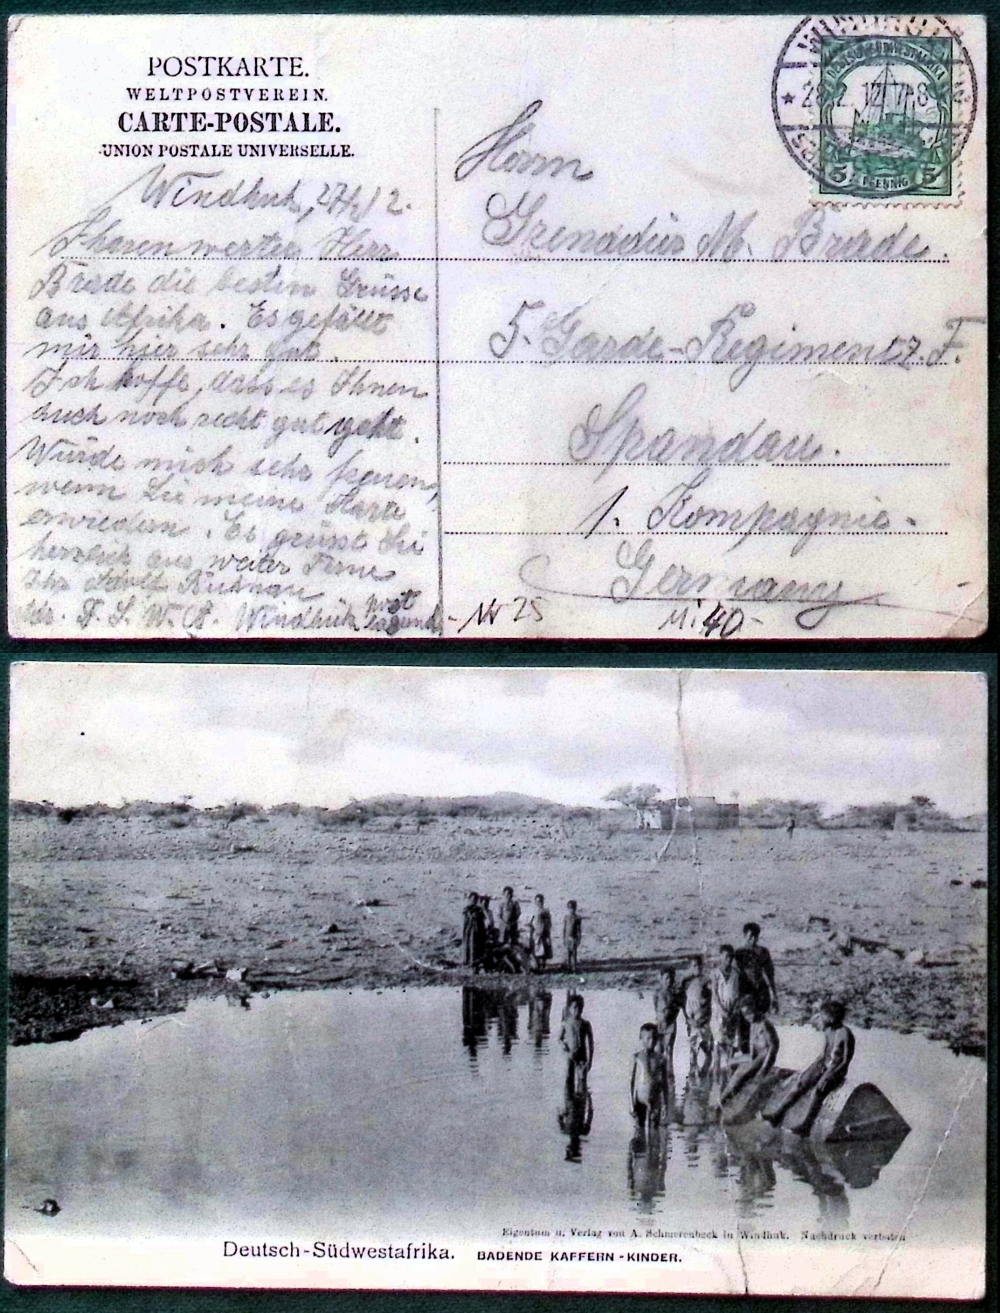 POSTKARTE.
WELTPOSTVEREIN.
CARTE-POSTALE.
UNION POSTALE UNIVERSELLE.
WINDHUK
28.2.12.7-8
DEUTSCH-SÜDWESTAFRIKA
5 PFENNIG 5
Windhuk, 27/2 12.
werter Herr
Brede die besten Grüsse
aus Afrika. Es gefällt
mir hier sehr gut.
Ich hoffe, dass es Ihnen
auch noch recht gut geht.
Würde mich sehr freuen,
wenn Sie meine Karte
erwiedern. Es grüsst Sie
herzlich aus weiter Ferne
Ihr Adolf
D. S. W. A. Windhuk
Herrn
Grenadier M. Brede.
5. Garde-Regiment z. F.
Spandau.
1. Kompagnie.
Germany
25
Mi 40-
Eigentum u. Verlag von A. Schmerenbeck in Windhuk. Nachdruck verboten
Deutsch-Südwestafrika. BADENDE KAFFERN-KINDER.